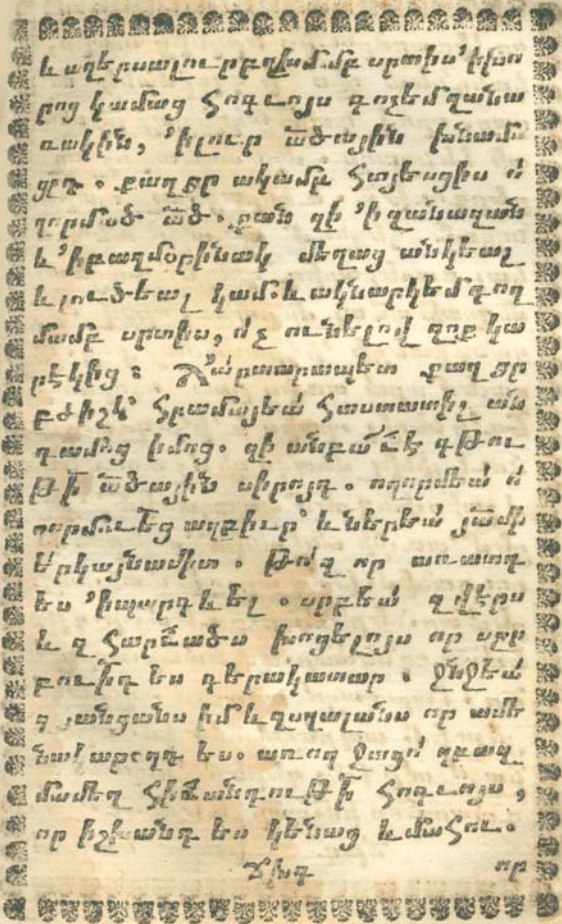 րոց կամաց հոգւոյս գոչեմ զանա
ռակին, ՚ի լուր ա֊ծային խնամ
ոցդ . քաղցր ակամբ հայեացիս ո՛
ղորմած ա֊ծ . քան զի ՚ի զանազան
և ՚ի բազմօրինակ մեղաց անկեալ
և լուծեալ կամ. և ակնարկեմ գող
մամբ սրտիս, ո՛չ ունելով զոք կա
րէկից : քաղցր
բժիշկ՝ հրամայեա՛ հաստատիլ ան
դամոց իմոց. զի գթու
թի ա֊ծային սիրոյդ . ողորմեա՛ ո՛
աղբիւր՝ և ներեա՛
Երկայնամիտ . թո՛ղ որ առատդ
ես ՚ի պարգևել . սրբեա՛ զվէրս
և զհարուածս խոցելոյս որ սրբ
ութիդ ես գերակատար . ջնջեա՛
զյանցանս իմ և զսղալանս որ ամե
նակարօղդ ես. առող ջացո՛ զբազ
մամեղ հիւանդութի հոգւոյս ,
որ իշխանդ ես կենաց և մահու.
որ